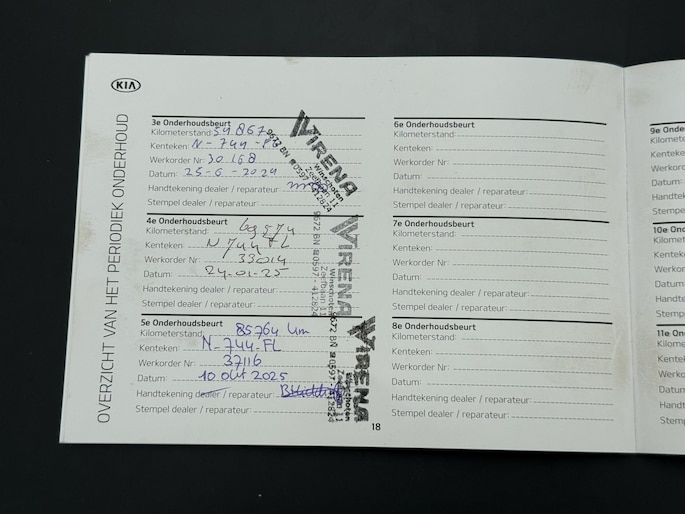 KIA
OVERZICHT VAN HET PERIODIEK ONDERHOUD
3e Onderhoudsbeurt
Kilometerstand: 54867
Kenteken: N-744-FL
Werkorder Nr: 30168
Datum: 25-6-2024
Handtekening dealer / reparateur:
Stempel dealer / reparateur:
VIRENA
Zeefbaan 11
Winschoten
9672 BN ☎0597-412824
4e Onderhoudsbeurt
Kilometerstand: 69574
Kenteken: N 744 FL
Werkorder Nr: 33014
Datum: 24-01-25
Handtekening dealer / reparateur:
Stempel dealer / reparateur:
VIRENA
Zeefbaan 11
Winschoten
9672 BN ☎0597-412824
5e Onderhoudsbeurt
Kilometerstand: 85764 km
Kenteken: N-744-FL
Werkorder Nr: 37116
Datum: 10 okt 2025
Handtekening dealer / reparateur:
Stempel dealer / reparateur:
VIRENA
Zeefbaan 11
Winschoten
9672 BN ☎0597-412824
18
6e Onderhoudsbeurt
Kilometerstand:
Kenteken:
Werkorder Nr:
Datum:
Handtekening dealer / reparateur:
Stempel dealer / reparateur:
7e Onderhoudsbeurt
Kilometerstand:
Kenteken:
Werkorder Nr:
Datum:
Handtekening dealer / reparateur:
Stempel dealer / reparateur:
8e Onderhoudsbeurt
Kilometerstand:
Kenteken:
Werkorder Nr:
Datum:
Handtekening dealer / reparateur:
Stempel dealer / reparateur:
9e On
Kilome
Kenteke
Werko
Datum
Handt
Stemp
10e On
Kilome
Kentek
Werko
Datum
Handt
Stemp
11e O
Kilome
Kente
Werko
Datum
Handt
Stemp